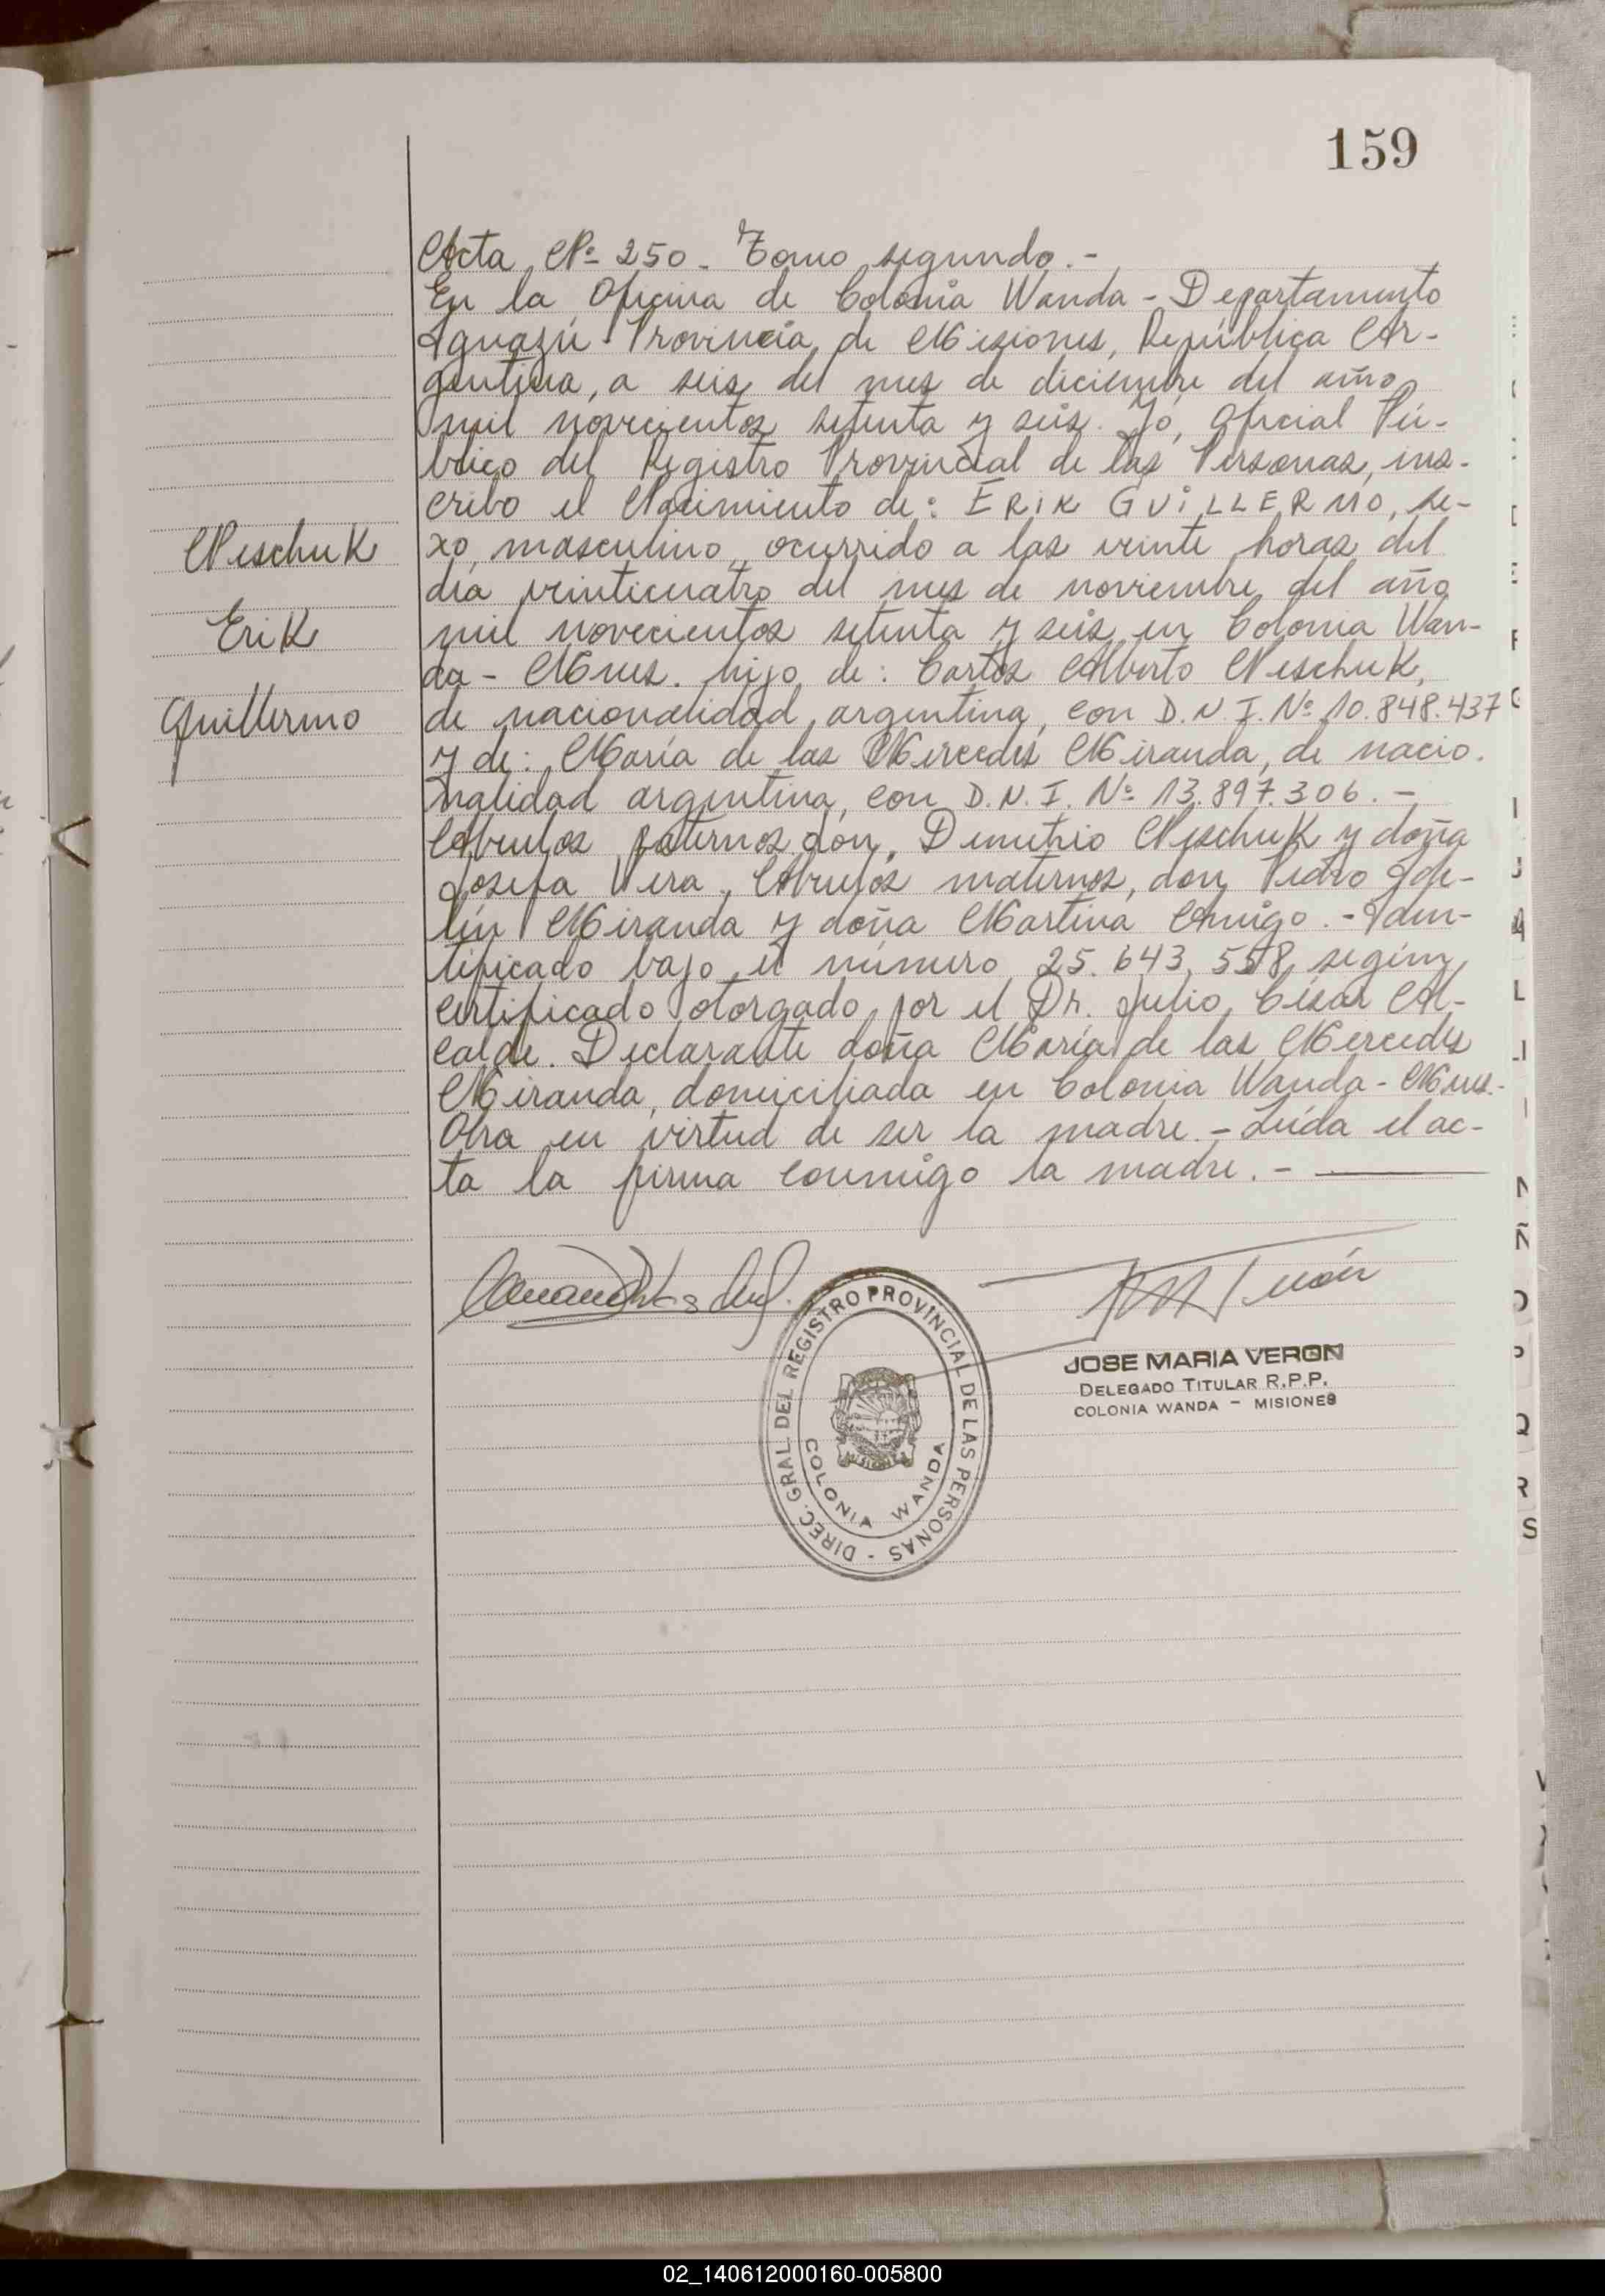 159
Acta Nº 250 - Tomo segundo.-
En la Oficina de Colonia Wanda - Departamento
Iguazú - Provincia de Misiones, República Ar-
gentina, a seis del mes de diciembre del año
mil novecientos setenta y seis. Yó, Oficial Pú-
blico del Registro Provincial de las Personas, ins-
cribo el Nacimiento de: ERIK GUILLERMO, se-
xo, masculino, ocurrido a las veinte horas del
día veinticuatro del mes de noviembre del año
mil novecientos setenta y seis en Colonia Wan-
da - Mnes. hijo de: Carlos Alberto Neschuk,
de nacionalidad argentina, con D.N.I. Nº 10.848.437
y de: María de las Mercedes Miranda, de nacio-
nalidad argentina, con D.N.I. Nº 13.897.306.-
Abuelos paternos don, Demetrio Neschuk y doña
Josefa Vera. Abuelos maternos, don Pedro Ide-
lín Miranda y doña Martina Amigo.- Iden-
tificado bajo el número 25.643.558, según
certificado otorgado por el Dr. Julio César Al-
calde. Declarante doña María de las Mercedes
Miranda, domiciliada en Colonia Wanda - Mnes.-
Obra en virtud de ser la madre.- Leída el ac-
ta la firma conmigo la madre.-
Neschuk
Erik
Guillermo
DIREC. GRAL DEL REGISTRO PROVINCIAL DE LAS PERSONAS -
COLONIA WANDA
JOSE MARIA VERON
DELEGADO TITULAR R.P.P.
COLONIA WANDA - MISIONES
02_140612000160-005800